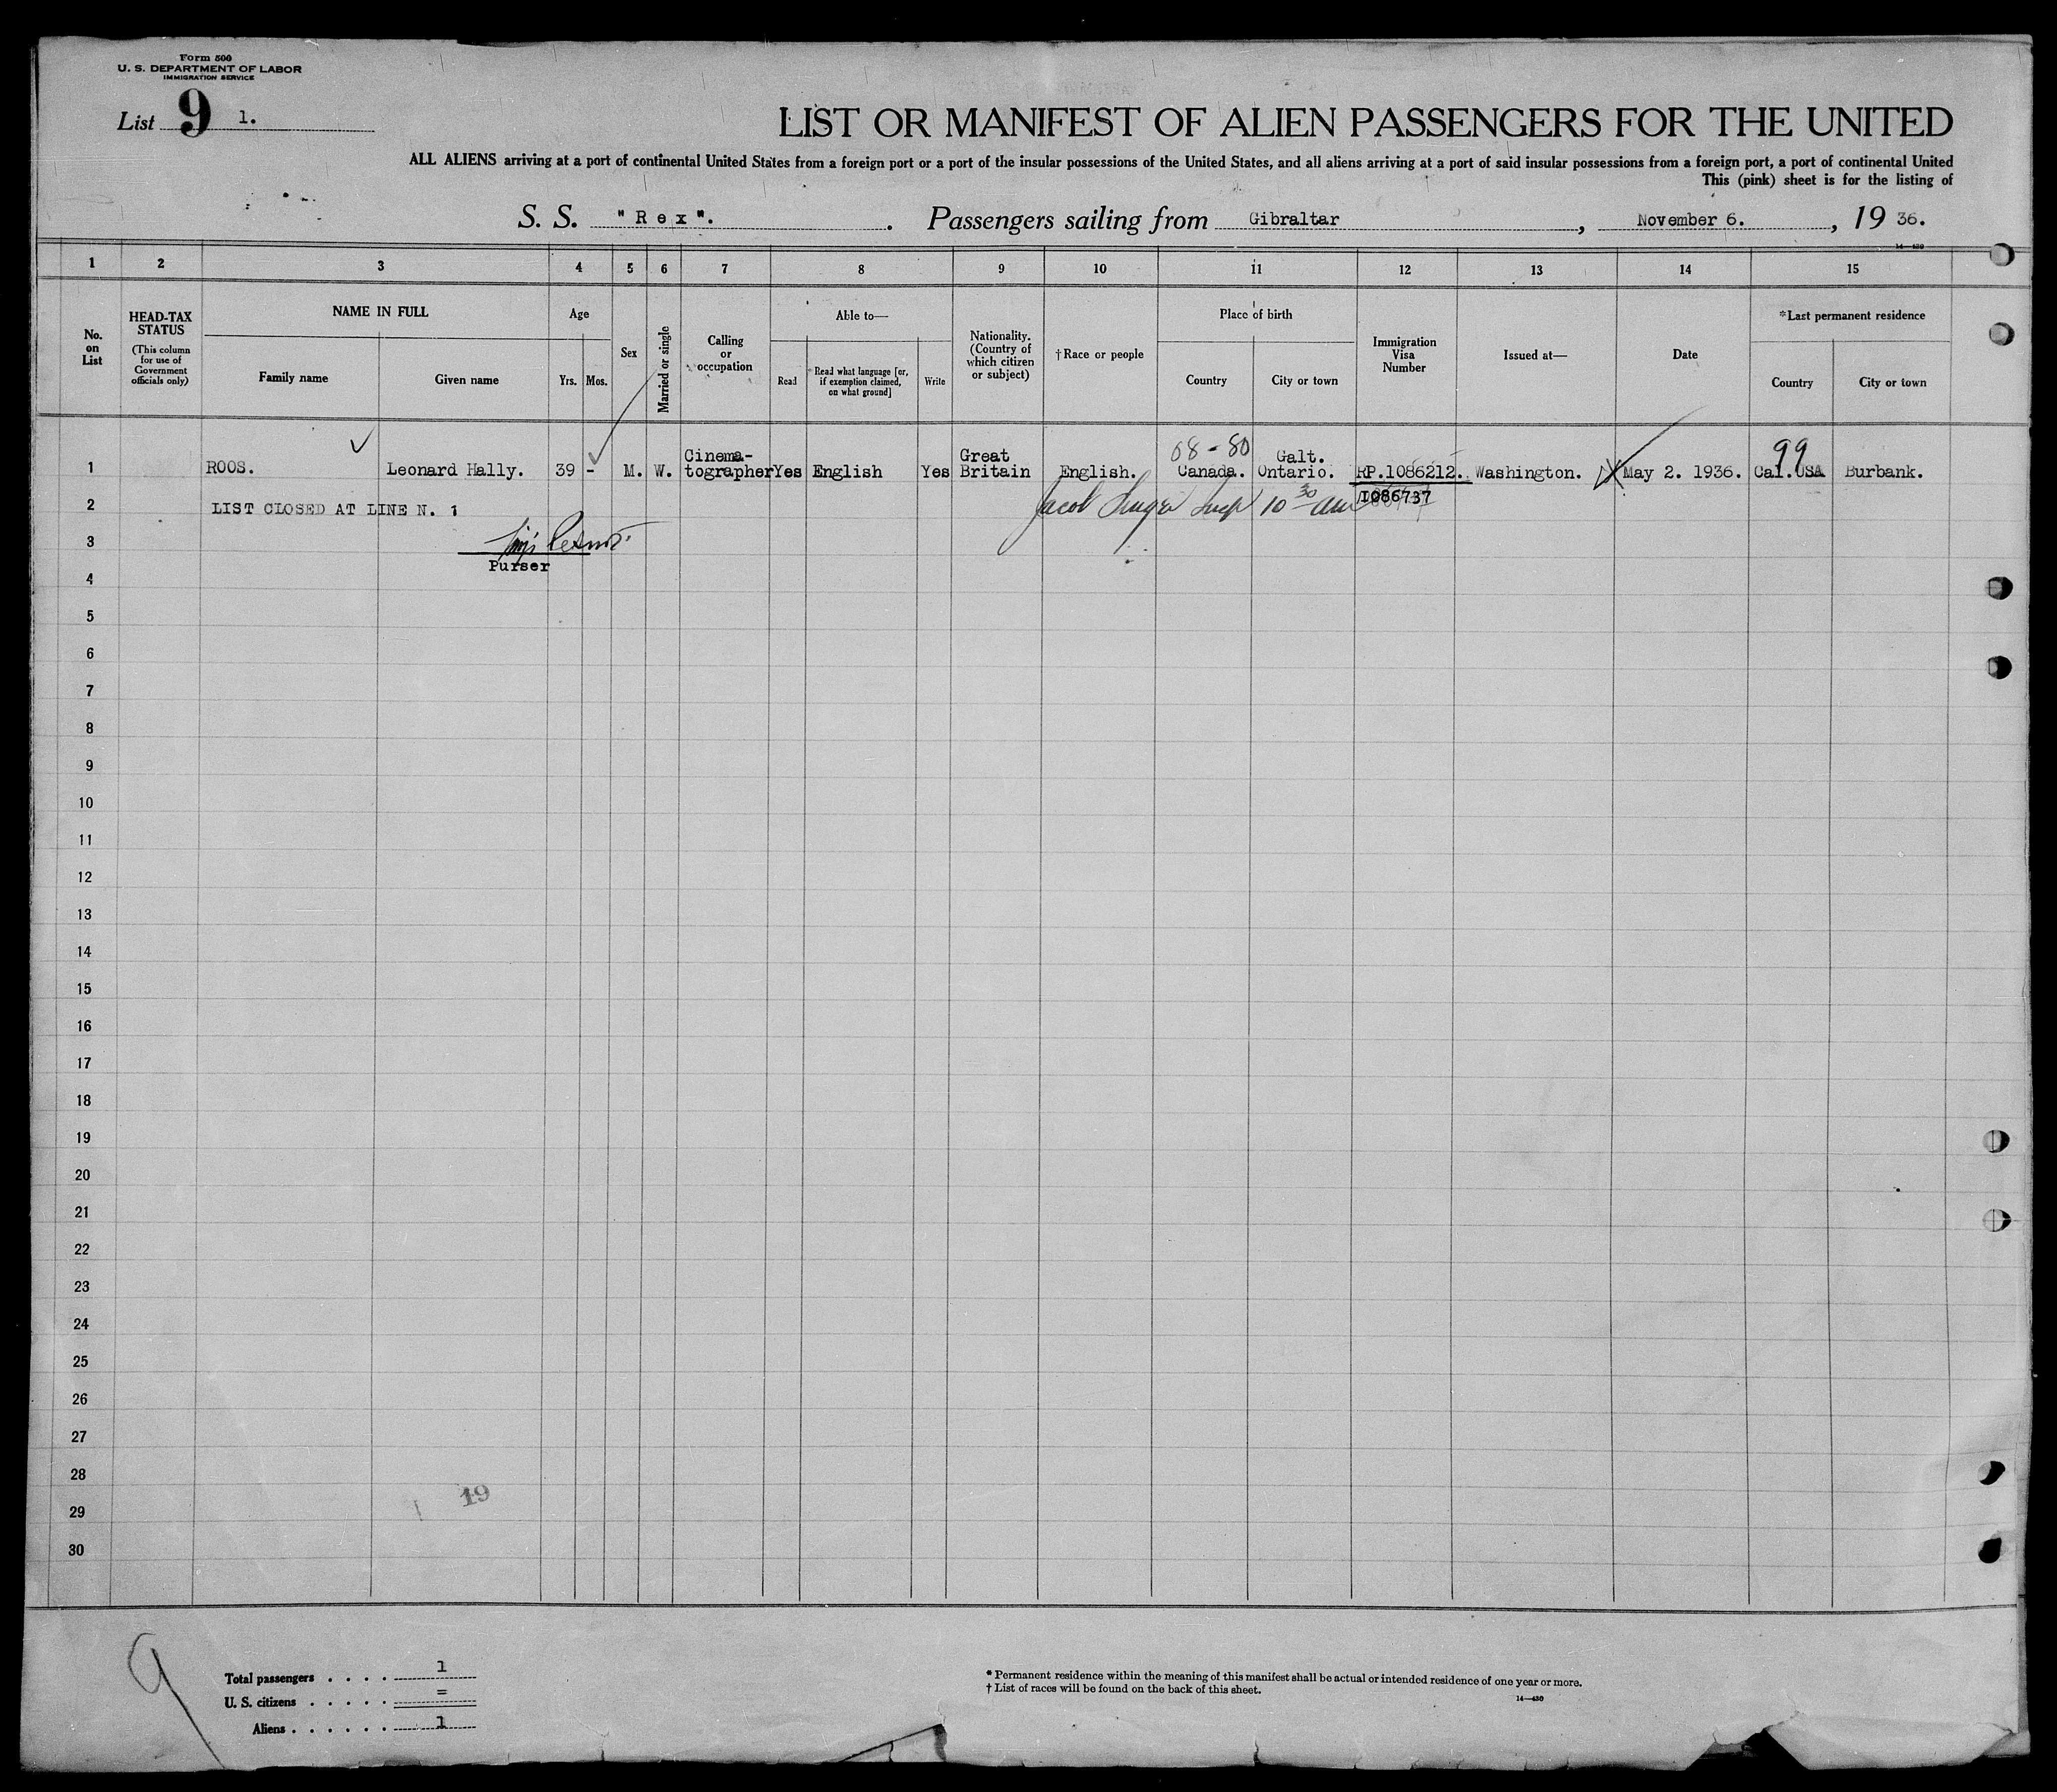 Form 500
U. S. DEPARTMENT OF LABOR
IMMIGRATION SERVICE
List 9 1.
LIST OR MANIFEST OF ALIEN PASSENGERS FOR THE UNITED
ALL ALIENS arriving at a port of continental United States from a foreign port or a port of the insular possessions of the United States, and all aliens arriving at a port of said insular possessions from a foreign port, a port of continental United
This (pink) sheet is for the listing of
S. S. "Rex". Passengers sailing from Gibraltar, November 6., 19 36.
14—430
1 2 3 4 5 6 7 8 9 10 11 12 13 14 15
No. on List
HEAD-TAX STATUS (This column for use of Government officials only)
NAME IN FULL
Family name Given name
Age
Yrs. Mos.
Sex
Married or single
Calling or occupation
Able to—
Read Read what language [or, if exemption claimed, on what ground] Write
Nationality. (Country of which citizen or subject)
†Race or people
Place of birth
Country City or town
Immigration Visa Number
Issued at—
Date
*Last permanent residence
Country City or town
08-80 99
1 ROOS. Leonard Hally. 39 - M. W. Cinema-tographer Yes English Yes Great Britain English. Canada. Galt. Ontario. RP.1086212. Washington. May 2. 1936. Cal.USA Burbank.
2 LIST CLOSED AT LINE N. 1 Jacob 10 30 am 1086737
3
Purser
4
5
6
7
8
9
10
11
12
13
14
15
16
17
18
19
20
21
22
23
24
25
26
27
28
19
29
30
9
Total passengers . . . . 1
U. S. citizens . . . . . =
Aliens . . . . . . 1
* Permanent residence within the meaning of this manifest shall be actual or intended residence of one year or more.
† List of races will be found on the back of this sheet.
14—430